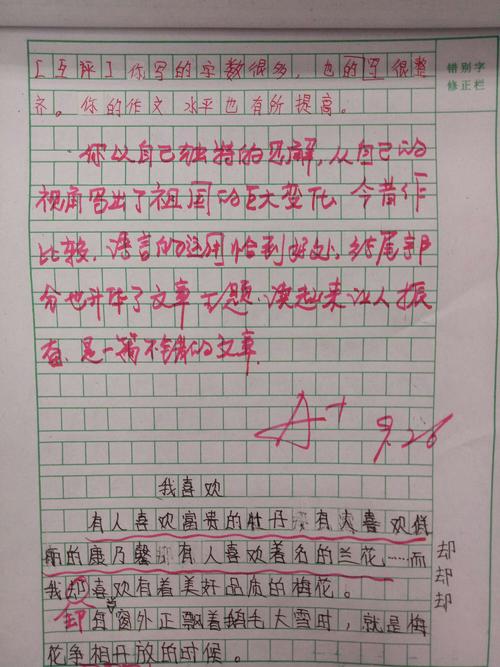 错别字
修正栏
[互评]你写的字数很多,也的写很整
齐。你的作文水平也有所提高。
你以自己独特的见解,从自己的
视角写出了祖国的巨大变化,今昔作
比较,语言的运用恰到好处,结尾部
分也升华了文章主题,读起来让人振
奋,是一篇不错的文章
A+ 9.26
我喜欢
有人喜欢富贵的牡丹 有人喜欢
丽的康乃馨 有人喜欢着名的兰花……而
我却喜欢有着美好品质的梅花。
却 每窗外正飘着鹅毛大雪时,就是梅
花争相开放的时候。
却
却
却